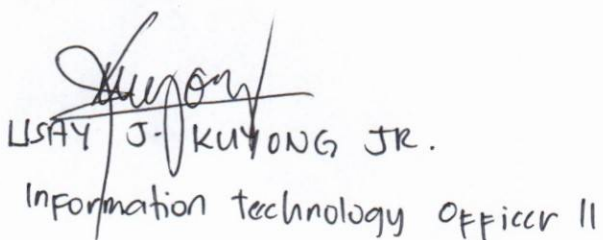 Kuyong
LISAY J. KUYONG JR.
Information technology Officer II